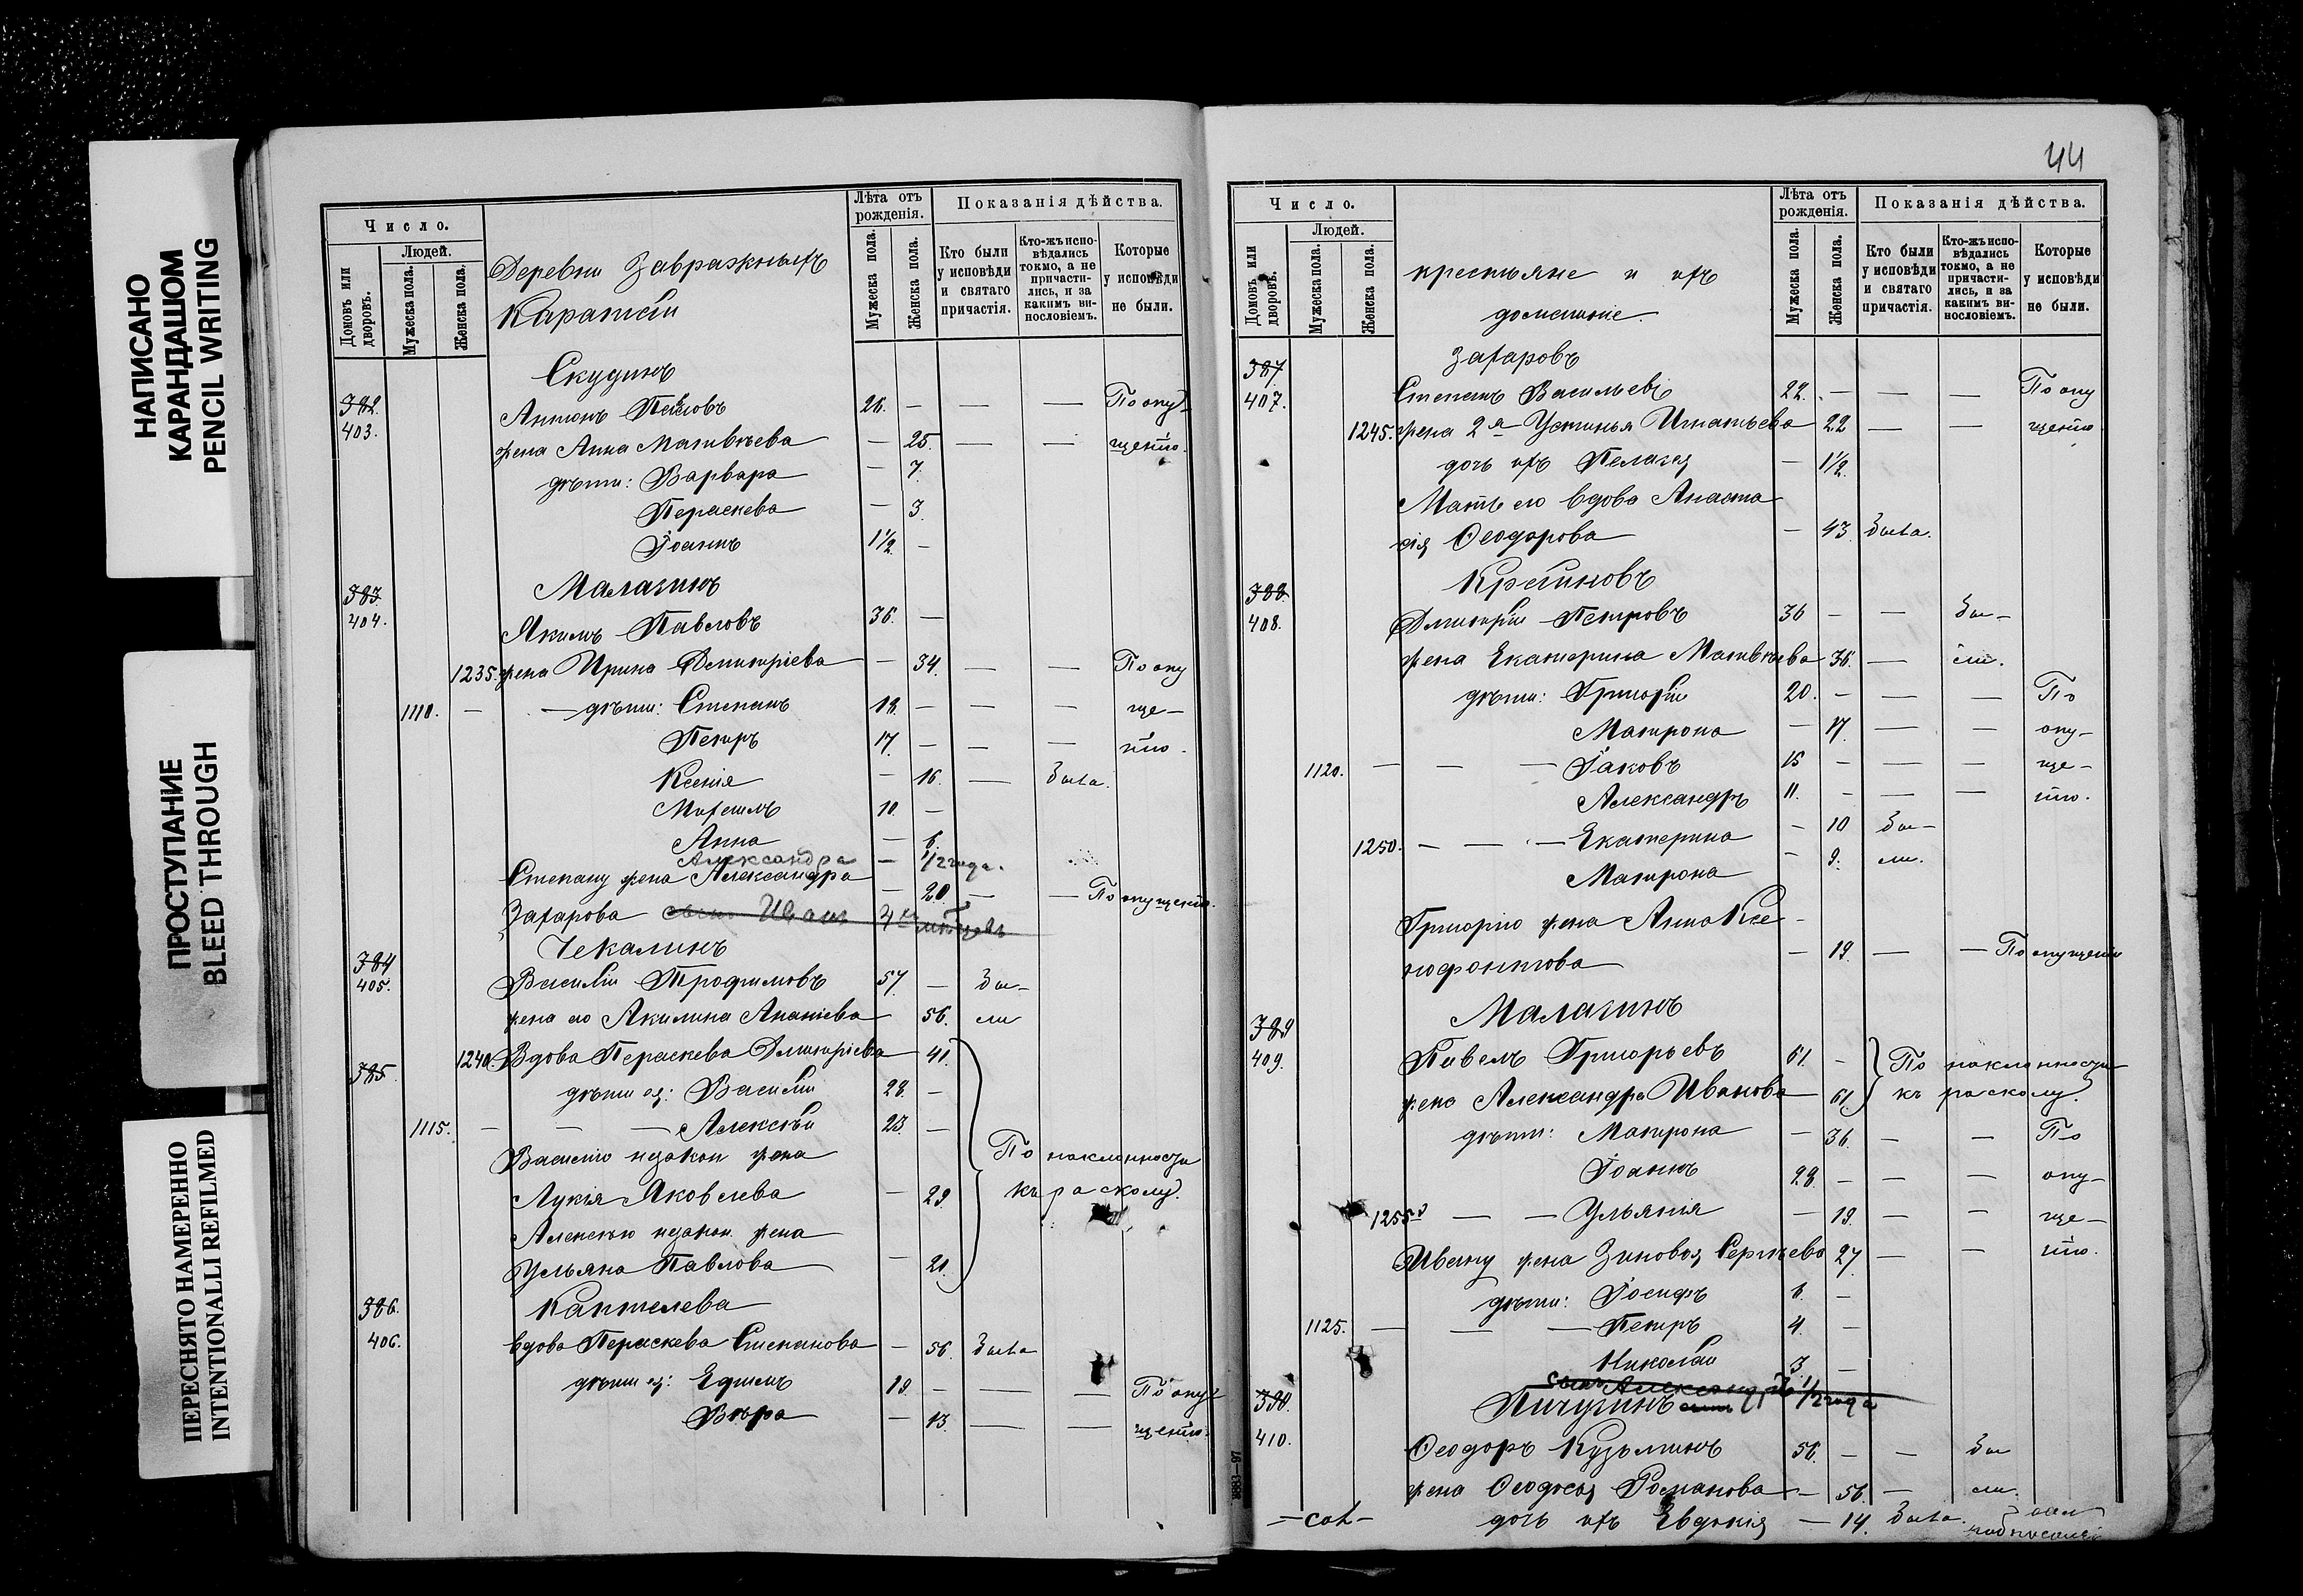 НАПИСАНО
КАРАНДАШОМ
PENCIL WRITING
ПРОСТУПАНИЕ
BLEED THROUGH
ПЕРЕСНЯТО НАМЕРЕННО
INTENTIONALLI REFILMED
Число.
Людей.
Домовъ или дворовъ.
Мужеска пола.
Женска пола.
Деревни Завражныхъ
Каратай
Лѣта отъ рожденія.
Мужеска пола.
Женска пола.
Показанія дѣйства.
Кто были у исповѣди и святаго причастія.
Кто-жъ исповѣдались токмо, а не причастились, и за какимъ винословіемъ.
Которые у исповѣди не были.
Скудинъ
382. 403. Антонъ 26. — — — По опу-
жена Анна Матвѣева — 25. — — щенію.
дѣти: Варвара — 7.
Параскева — 3.
Іоаннъ 1½ —
Малагинъ
383. 404. Якимъ Павловъ 36. —
1235. жена Ирина Димитріева — 34. — — По опу
1110. — — дѣти: Степанъ 18. — — — ще-
Петръ 17. — — — нію.
Ксенія — 16. — Была.
10. —
Анна — 6.
Александра — 1/2 года.
Степану жена Александра
Захарова — 20. — — По опущенію.
сынъ Иванъ
Чекалинъ
384 405. Василій Трофимовъ 57. — Бы-
жена его Акилина Ананіева — 56. ли
385. 1240. Вдова Параскева Димитріева — 41.
дѣти ея: Василій 28. —
1115. — — — Алексѣй 23. —
Василію незакон жена
Лукія Яковлева — 29.
Алексѣю незакон. жена
Ульяна Павлова — 20.
По наклонности
къ расколу.
Каптелева
386. 406. вдова Параскева Степанова — 56. Была
дѣти ея: Ефимъ 19. — — — По опу
Вѣра — 13. — — щенію.
44
Число.
Людей.
Домовъ или дворовъ.
Мужеска пола.
Женска пола.
крестьяне и ихъ
домашніе.
Лѣта отъ рожденія.
Мужеска пола.
Женска пола.
Показанія дѣйства.
Кто были у исповѣди и святаго причастія.
Кто-жъ исповѣдались токмо, а не причастились, и за какимъ винословіемъ.
Которые у исповѣди не были.
Захаровъ
387. 407. Степанъ Васильевъ 22. — — — По опу
1245. жена 2я Устинья Игнатьева 22 — — щенію.
дочь ихъ Пелагея — 1½.
Мать его вдова Анаста
сія Ѳеодорова — 43. Была.
388. 408. Димитрій Петровъ 36 — — Бы-
жена Екатерина Матвѣева 36. — ли.
дѣти: Григорій 20. — — — По
Матрона — 17. — — опу-
1120. — — — Іаковъ 15 — — — ще-
Александръ 11. — — — нію.
1250. — — — Екатерина — 10 Бы-
Матрона — 9. ли.
Григорію жена Анна Ксе-
нофонтова — 19. — — По опущенію
Малагинъ
389 409. Павелъ Григорьевъ 61. —
жена Александра Иванова 61.
По наклонности
къ расколу.
дѣти: Матрона — 36. — — По
Іоаннъ 28. — — — опу-
1255. — — Ульянія — 19. — — ще-
Ивану жена Зиновія Сергѣева 27. — — нію.
дѣти: Іосифъ 6. —
1125. — — — Петръ 4. —
Николай 3. —
сынъ Александръ 1/2 года
Пичугинъ
390. 410. Ѳеодоръ Кузьминъ 56. — — Бы
жена Ѳеодосія Романова — 56. — ли.
дочь ихъ Евдокія — 14. Была.
8883—97